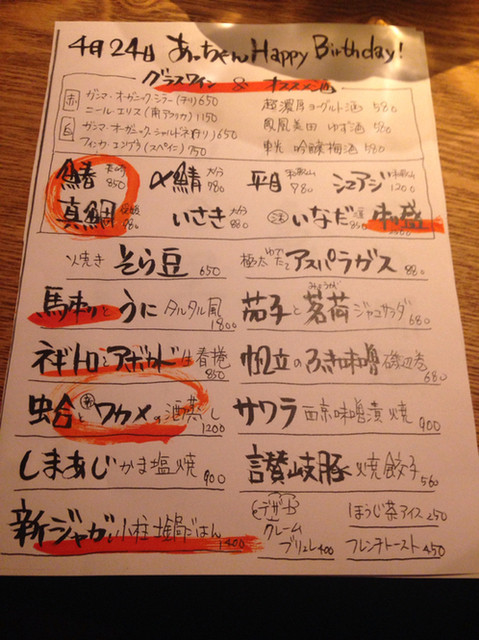 4月24日 あっちゃん Happy Birthday!
グラスワイン & オススメ酒
赤 ガンマ・オーガニック・シラー(チリ) 650
ニール・エリス(南アフリカ) 1150
白 ガンマ・オーガニック・シャルドネ(チリ) 650
フィンカ・エンゲラ(スペイン) 750
超濃厚ヨーグルト酒 580
鳳凰美田 ゆず酒 580
東光 吟醸梅酒 580
鰆 850 〆鯖 大分 780 平目 和歌山 980 シマアジ 和歌山 1200
真鯛 980 いさき 大分 880 いなだ 850 刺盛
火焼き そら豆 650
極太 ゆでたて アスパラガス 880
馬刺しとうに タルタル風 1800
茄子と茗荷 みょうが ジャコサラダ 680
ネギトロとアボカド 生春捲 850
帆立のふき味噌 磯辺巻 680
蛤と新ワカメの酒蒸し 1200
サワラ 西京味噌漬焼 900
しまあじ かま塩焼 900
讃岐豚 焼餃子 560
新ジャガと小柱 土鍋ごはん 1400
デザート
クレームブリュレ 400
ほうじ茶アイス 250
フレンチトースト 450